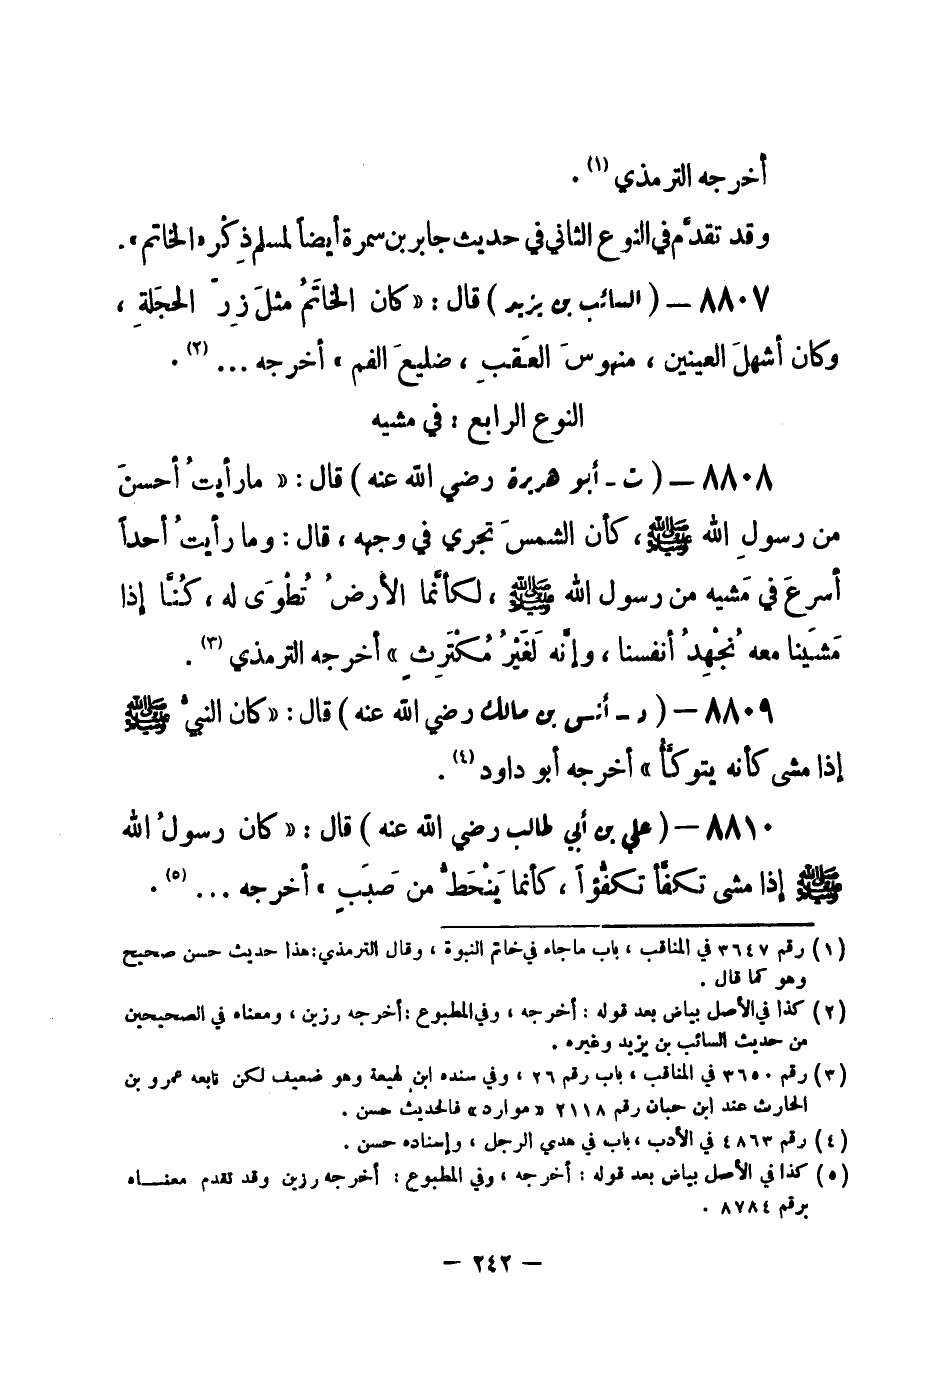 أخرجه الترمذي (١) .
وقد تقدَّم في النوع الثاني في حديث جابر بن سمرة أيضاً لمسلم ذِكْر «الخاتم» .
٨٨٠٧ – ( السائب بن يزيد ) قال : « كان الخاتَمُ مثلَ زِرِّ الحجَلةِ ،
وكان أشهلَ العينين ، منهوسَ العَقبِ ، ضليعَ الفم » أخرجه ... (٢) .
النوع الرابع : في مشيه
٨٨٠٨ – ( ت - أبو هريرة رضي الله عنه ) قال : « ما رأيتُ أحسنَ
من رسولِ الله ﷺ ، كأن الشمسَ تجري في وجهه ، قال : وما رأيتُ أحداً
أسرعَ في مَشيه من رسول الله ﷺ ، لكأنَّما الأرضُ تُطْوَى له ، كُنَّا إذا
مَشَينا معه نُجْهِدُ أنفسنا ، وإنَّه لَغَيْرُ مُكْتَرِثٍ » أخرجه الترمذي (٣) .
٨٨٠٩ – ( د - أنس بن مالك رضي الله عنه ) قال : « كان النبيُّ ﷺ
إذا مشى كأنه يتوكَّأُ » أخرجه أبو داود (٤) .
٨٨١٠ – ( علي بن أبي طالب رضي الله عنه ) قال : « كان رسولُ الله
ﷺ إذا مشى تكفَّأ تكفُّؤاً ، كأنما يَنْحَطُّ من صَبَبٍ » أخرجه ... (٥) .
(١) رقم ٣٦٤٧ في المناقب ، باب ماجاء في خاتم النبوة ، وقال الترمذي : هذا حديث حسن صحيح
وهو كما قال .
(٢) كذا في الأصل بياض بعد قوله : أخرجه ، وفي المطبوع : أخرجه رزين ، ومعناه في الصحيحين
من حديث السائب بن يزيد وغيره .
(٣) رقم ٣٦٥٠ في المناقب ، باب رقم ٢٦ ، وفي سنده ابن لهيعة وهو ضعيف لكن تابعه عمرو بن
الحارث عند ابن حبان رقم ٢١١٨ «موارد» فالحديث حسن .
(٤) رقم ٤٨٦٣ في الأدب ، باب في هدي الرجل ، وإسناده حسن .
(٥) كذا في الأصل بياض بعد قوله : أخرجه ، وفي المطبوع : أخرجه رزين وقد تقدم معنـــاه
برقم ٨٧٨٤ .
– ٢٤٢ –